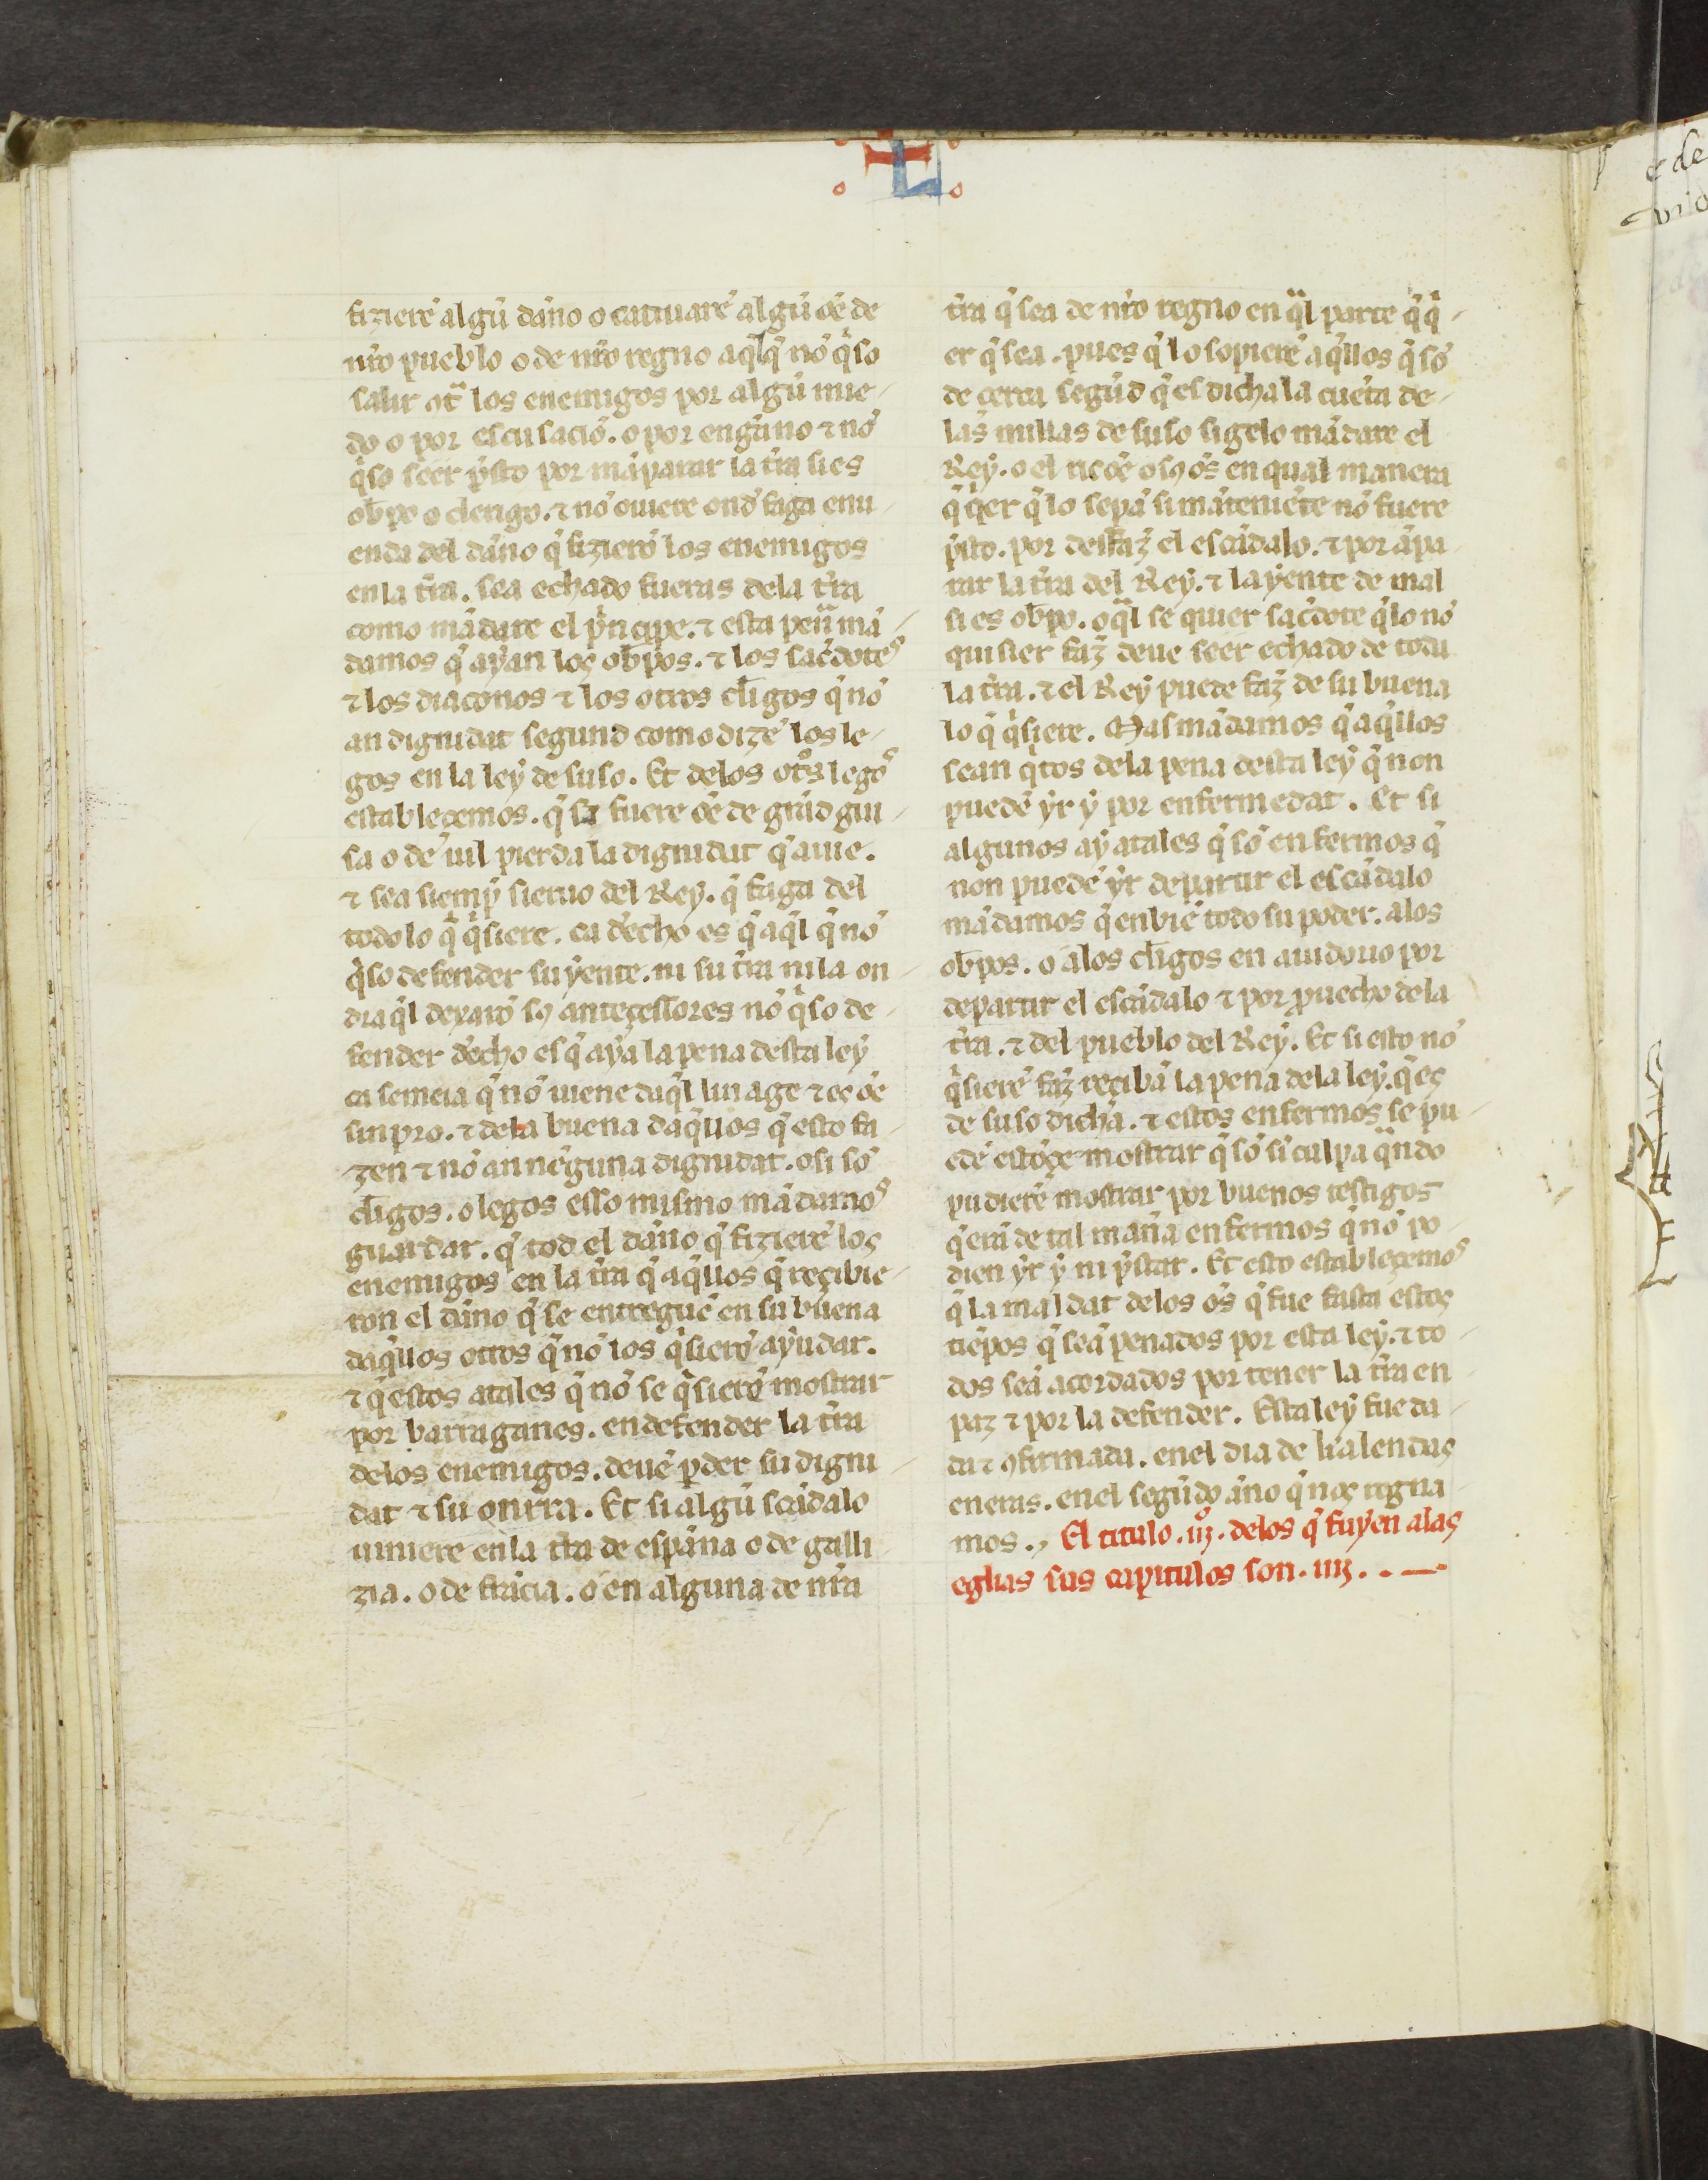 L
fizierẽ algũ dãno o catiuarẽ algũ oẽ de
nr̃o pueblo o de nr̃o regno aq̃l q̃ nõ q̃so
salir ot̃ los enemigos por algũ mie-
do o por escusaciõ. o por engãno ⁊ nõ
q̃so seer p̃sto por mãparar la tr̃ra si es
ob̃po o clerigo. ⁊ nõ ouiere ond̃ faga emi-
enda del dãno q̃ fizierõ los enemigos
en la tr̃ra. sea echado fueras dela tr̃ra
como mãdare el p̃ncipe. ⁊ esta pen̄a mã-
damos q̃ ayan los ob̃pos. ⁊ los sac̃dotes
⁊ los diaconos ⁊ los otros cl̃igos q̃ nõ
an dignidat segund como dizẽ los le-
gos en la ley de suso. Et delos ot̃os legos
establecemos. q̃ si fuere oẽ de grãd gui-
sa o dẽ uil pierda la dignidat q̃ auie.
⁊ sea siemp̃ sieruo del Rey. q̃ faga del
todo lo q̃ q̃siere. ca dẽcho es q̃ aq̃l q̃ nõ
q̃so defender su yente. ni su tr̃ra ni la on-
dra q̃l dexarõ sꝯ anteçessores nõ q̃so de-
fender dẽcho es q̃ aya la pena desta ley
ca semeia q̃ nõ uiene daq̃l linage ⁊ es oẽ
sin pro. ⁊ dela buena daq̃llos q̃ esto fa-
zen ⁊ nõ an nẽguna dignidat. o si sõ
cl̃igos. o legos esso mismo mãdamos
guardar. q̃ tod el dãno q̃ fizierẽ los
enemigos en la tr̃ra q̃ aq̃llos q̃ reçibie-
ron el dãno q̃ se entreguẽ en su buena
daq̃llos otros q̃ nõ los q̃sierõ ayudar.
⁊ q̃ estos atales q̃ nõ se q̃sierõ mostrar
por barraganes. en defender la tr̃ra
delos enemigos. deuẽ p̃der su digni-
dat ⁊ su onrra. Et si algũ scãdalo
uiniere en la tr̃ra de espãna o de galli-
zia. o de frãcia. o en alguna de nr̃a
tr̃ra q̃ sea de nr̃o regno en q̃l parte q̃ q̃-
er q̃ sea. pues q̃ lo sopierẽ aq̃llos q̃ sõ
de çerca segũd q̃ es dicha la cuẽta de-
las millas de suso sigelo mãdare el
Rey. o el ric oẽ o sꝯ oẽs en qual manera
q̃ q̃er q̃ lo sepã si mãteniẽte nõ fuere
p̃sto. por desfaz̃ el escãdalo. ⁊ por ãpa-
rar la tr̃ra del Rey. ⁊ la yente de mal
si es ob̃po. o q̃l se quier sac̃dote q̃ lo nõ
quisier faz̃ deue seer echado de toda
la tr̃ra. ⁊ el Rey puede faz̃ de su buena
lo q̃ q̃siere. Mas mãdamos q̃ aq̃llos
sean q̃tos dela pena desta ley q̃ non
puedẽ yr y por enfermedat. Et si
algunos ay atales q̃ sõ enfermos q̃
non puedẽ yr departir el escãdalo
mãdamos q̃ enbiẽ todo su poder. alos
ob̃pos. o alos cl̃igos en aiudorio por
departir el escãdalo ⁊ por prouecho dela
tr̃ra. ⁊ del pueblo del Rey. Et si esto nõ
q̃sierẽ faz̃ reçibã la pena dela ley. q̃ es
de suso dicha. ⁊ estos enfermos se pu-
edẽ estõçe mostrar q̃ sõ sĩ culpa q̃ndo
pudierẽ mostrar por buenos testigos
q̃ erã de tal mañra enfermos q̃ nõ po-
dien yr y ni p̃star. Et esto establecemos
q̃ la maldat delos oẽs q̃ fue fasta estos
tiẽpos q̃ seã penados por esta ley. ⁊ to-
dos seã acordados por tener la tr̃ra en
paz ⁊ por la defender. Esta ley fue da-
da ⁊ ꝯfirmada. en el dia de kalendas
eneras. en el segũdo ãno q̃ nos regna-
mos. El titulo .iij.º delos q̃ fuyen alas
egl̃ias sus capitulos son .iiij.